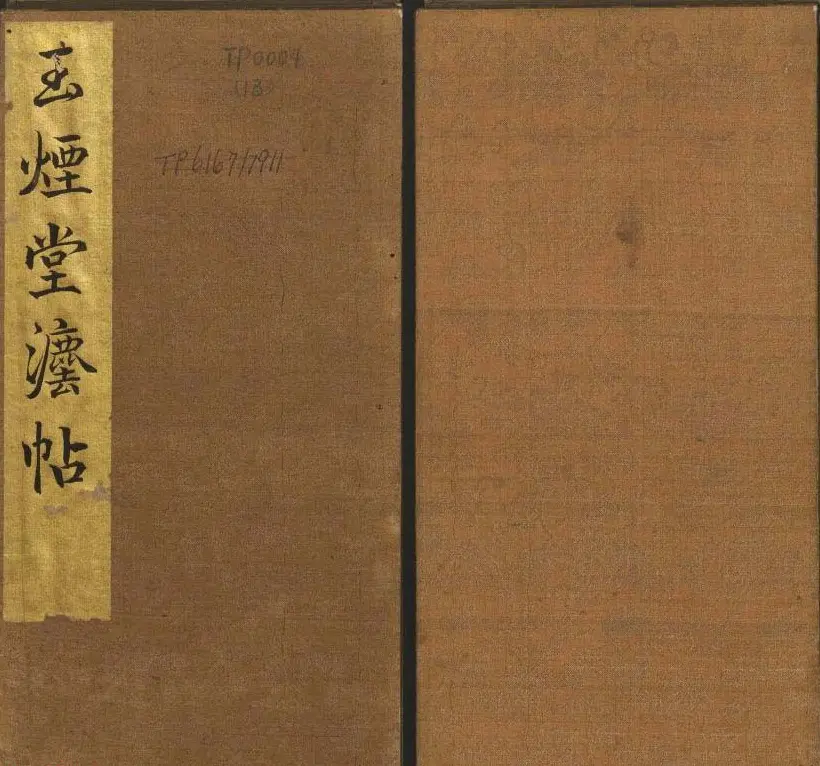 玉煙堂灋帖
TP0004
(13)
TP6167/7911